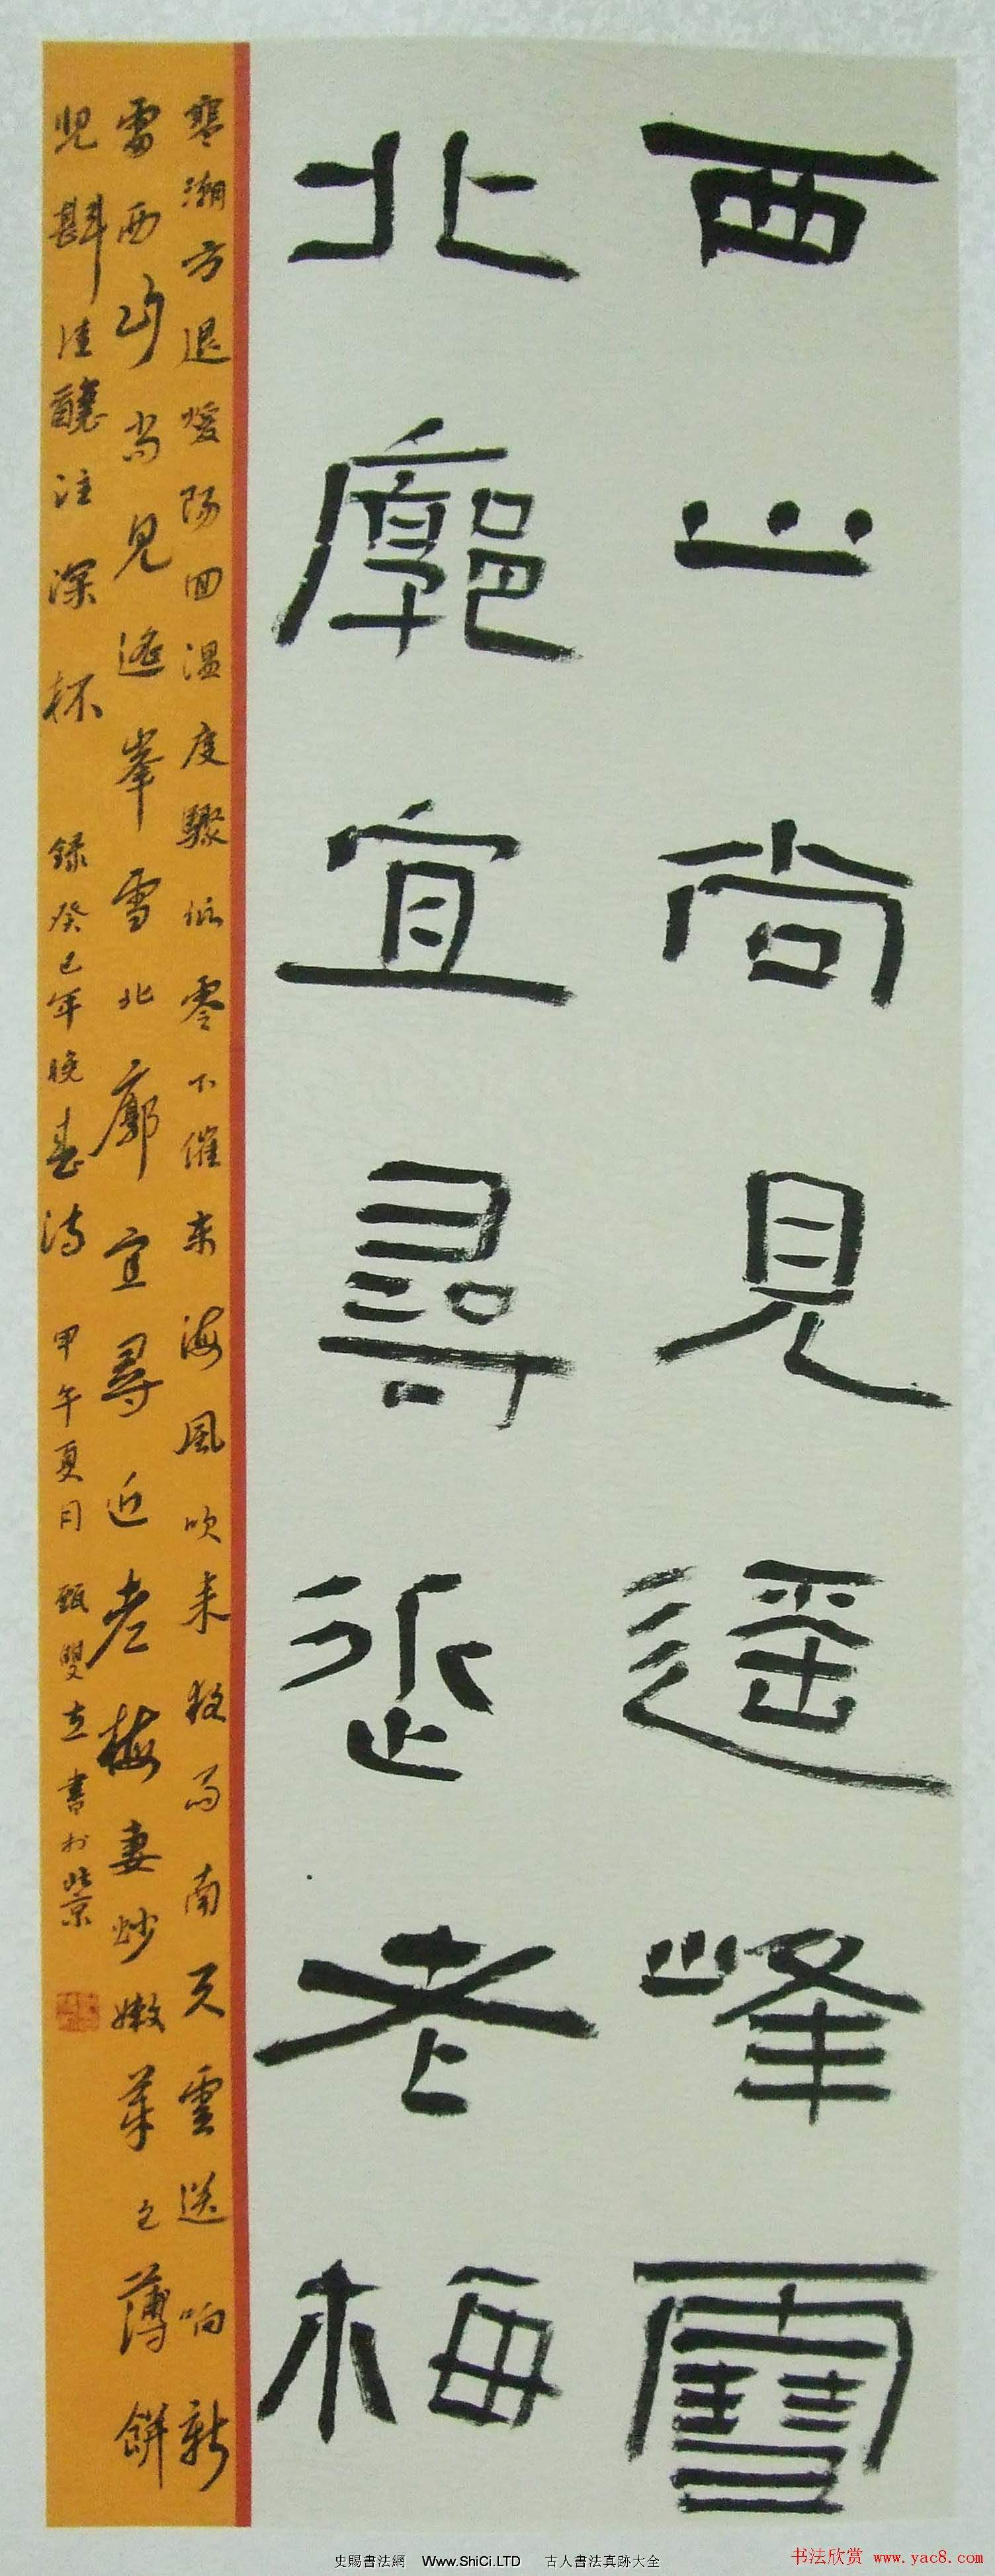 西山尚見遥峰雪
北廓宜尋近老梅
寒潮方退煖陽回溫度驟低零下催東海風吹來牧馬南天雲送响新
雷西山尚見遙峯雪北廓宜尋近老梅妻炒嫩菜包薄餅
兒斟佳釀注深杯 錄癸巳年晚春詩 甲午夏日 甄雙立書於北京
史賜書法網 Www.ShiCi.LTD 古人書法真跡大全
书法欣赏 www.yac8.com